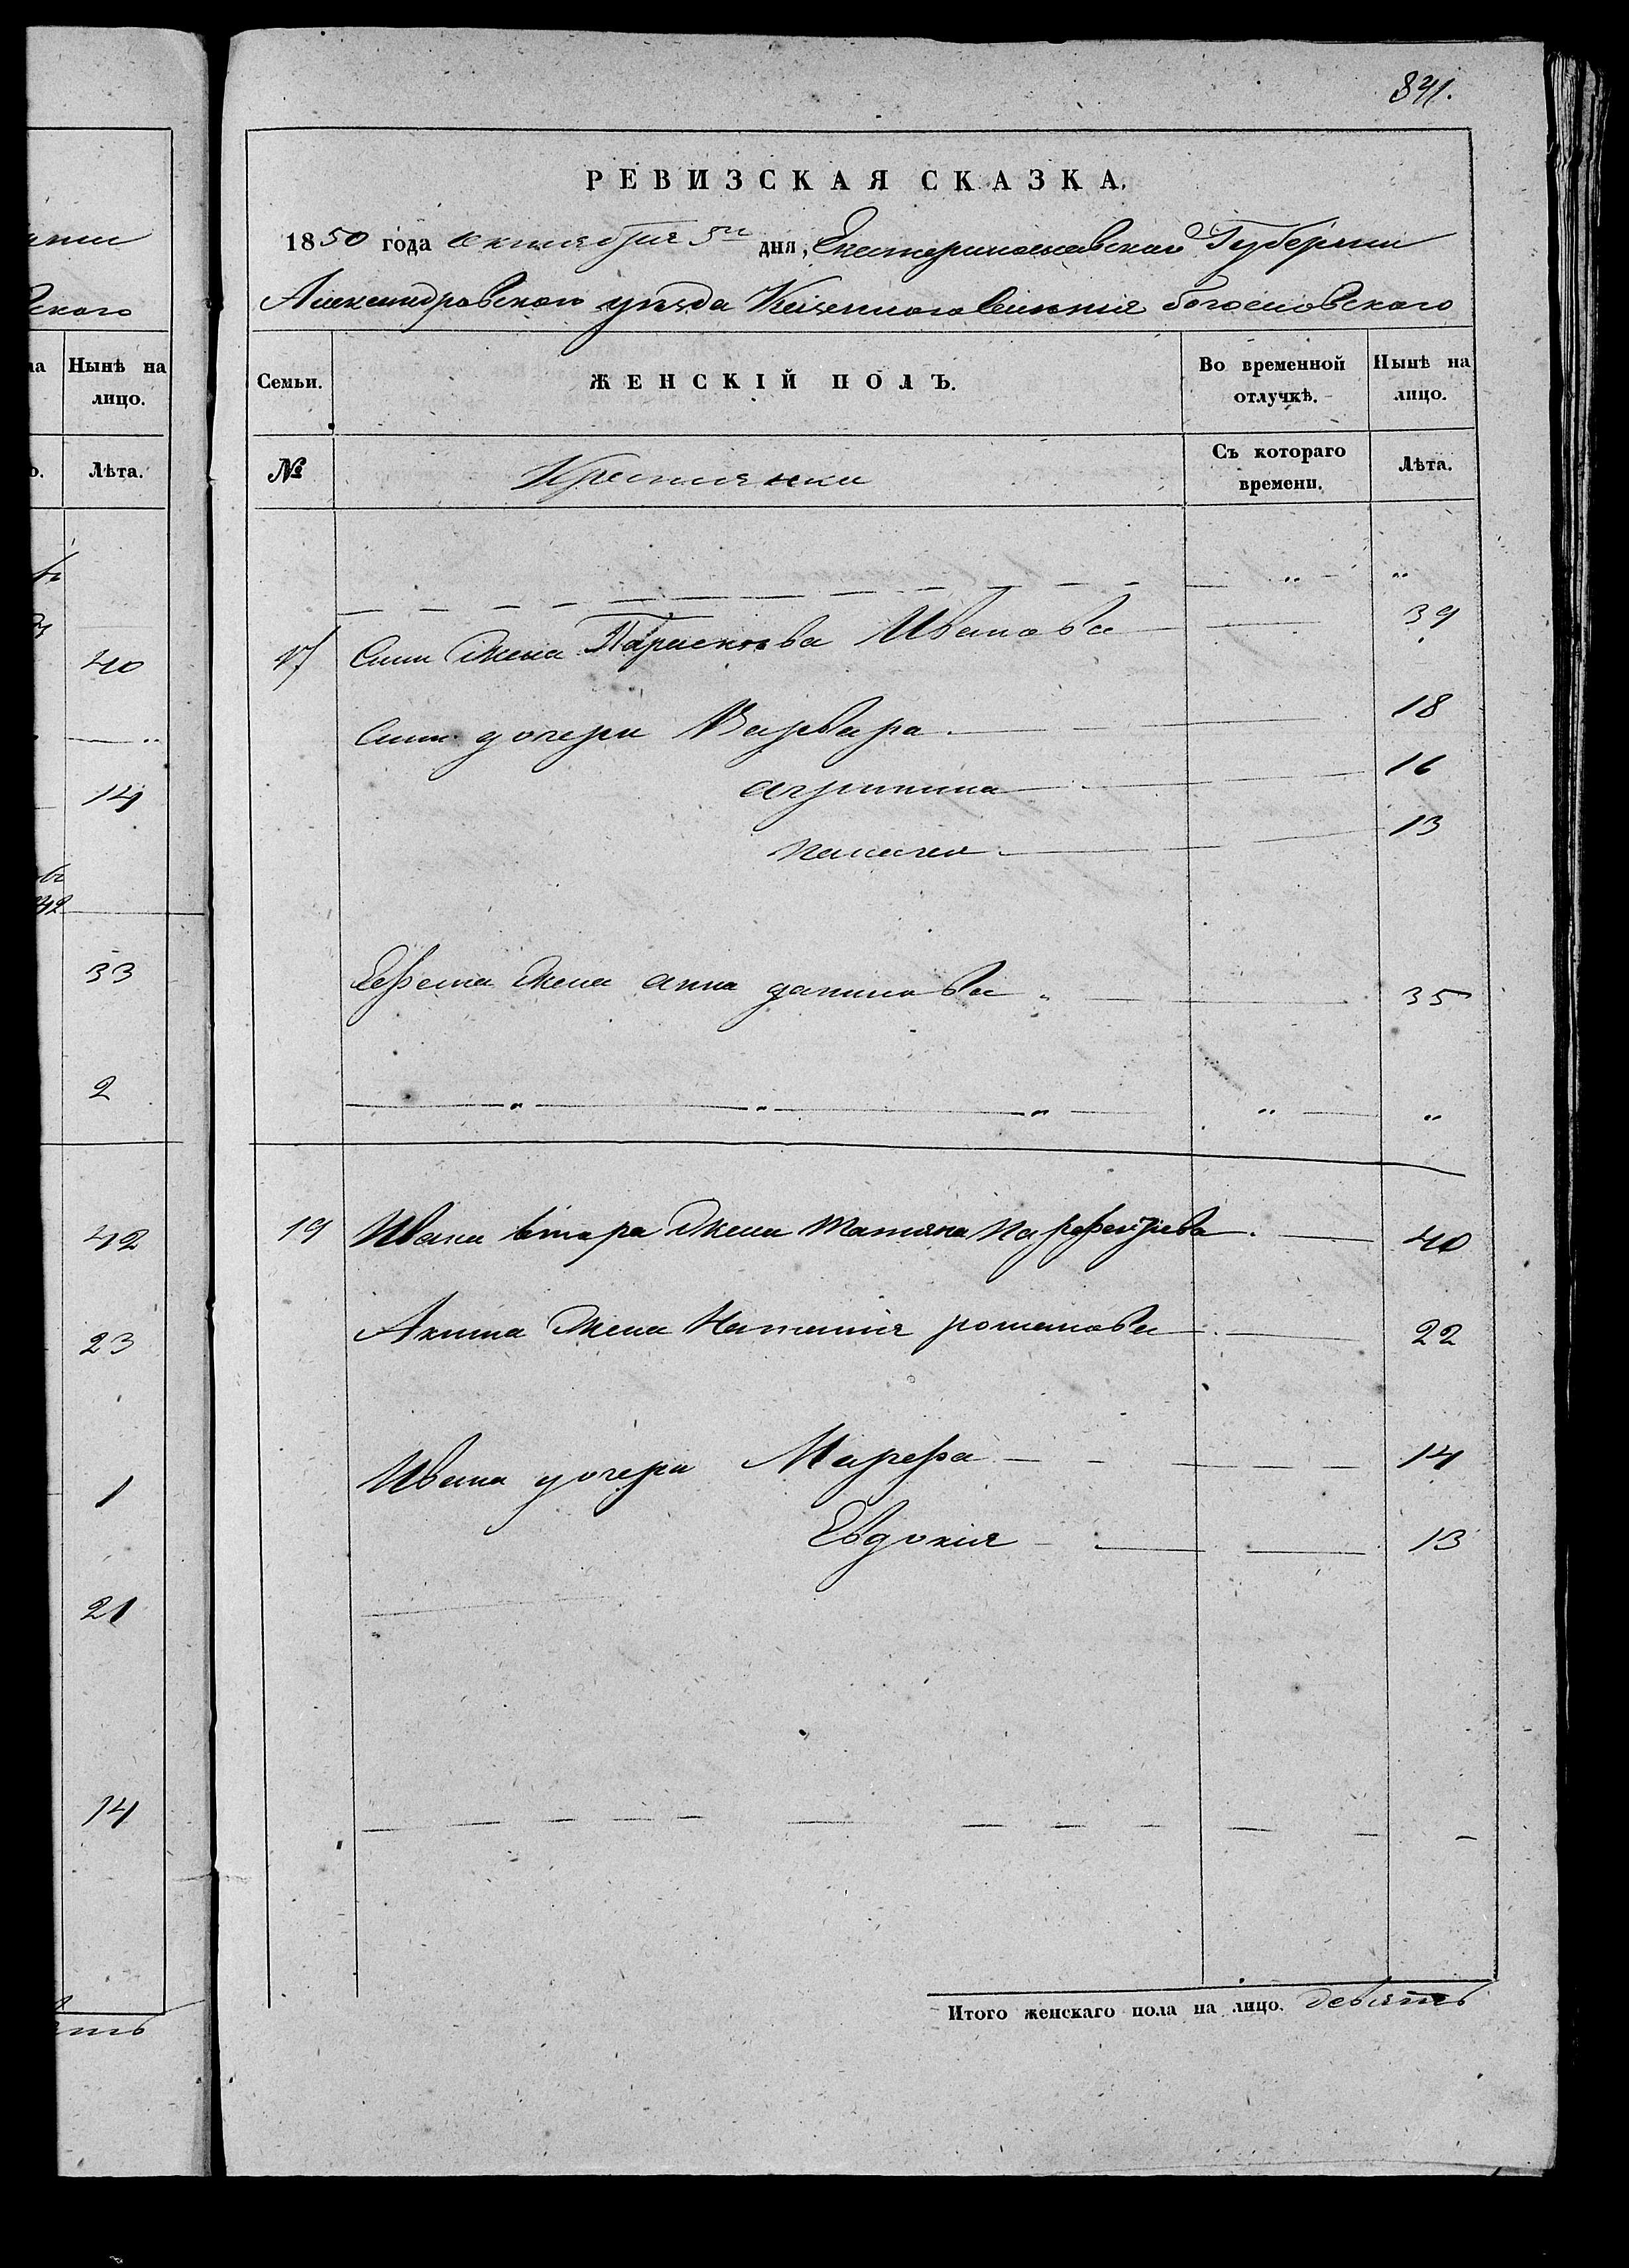 841.
РЕВИЗСКАЯ СКАЗКА.
1850 года октября 5го дня, Екатеринославской Губернии
Александровского уезда Казенного Селения Богословского
Семьи. ЖЕНСКІЙ ПОЛЪ. Во временной отлучкѣ. Нынѣ на лицо.
№ Крестьянки Съ котораго времени. Лѣта.
17 жена Парасковья Иванова 39
дочери Варвара 18
агрипина 16
13
жена анна данилова 35
19 Ивана жена Татьяна 40
Акима жена Наталия романова 22
Ивана дочери Марефа 14
Евдокия 13
Итого женскаго пола на лицо. девять
Нынѣ на лицо.
Лѣта.
40
14
33
2
42
23
1
21
14